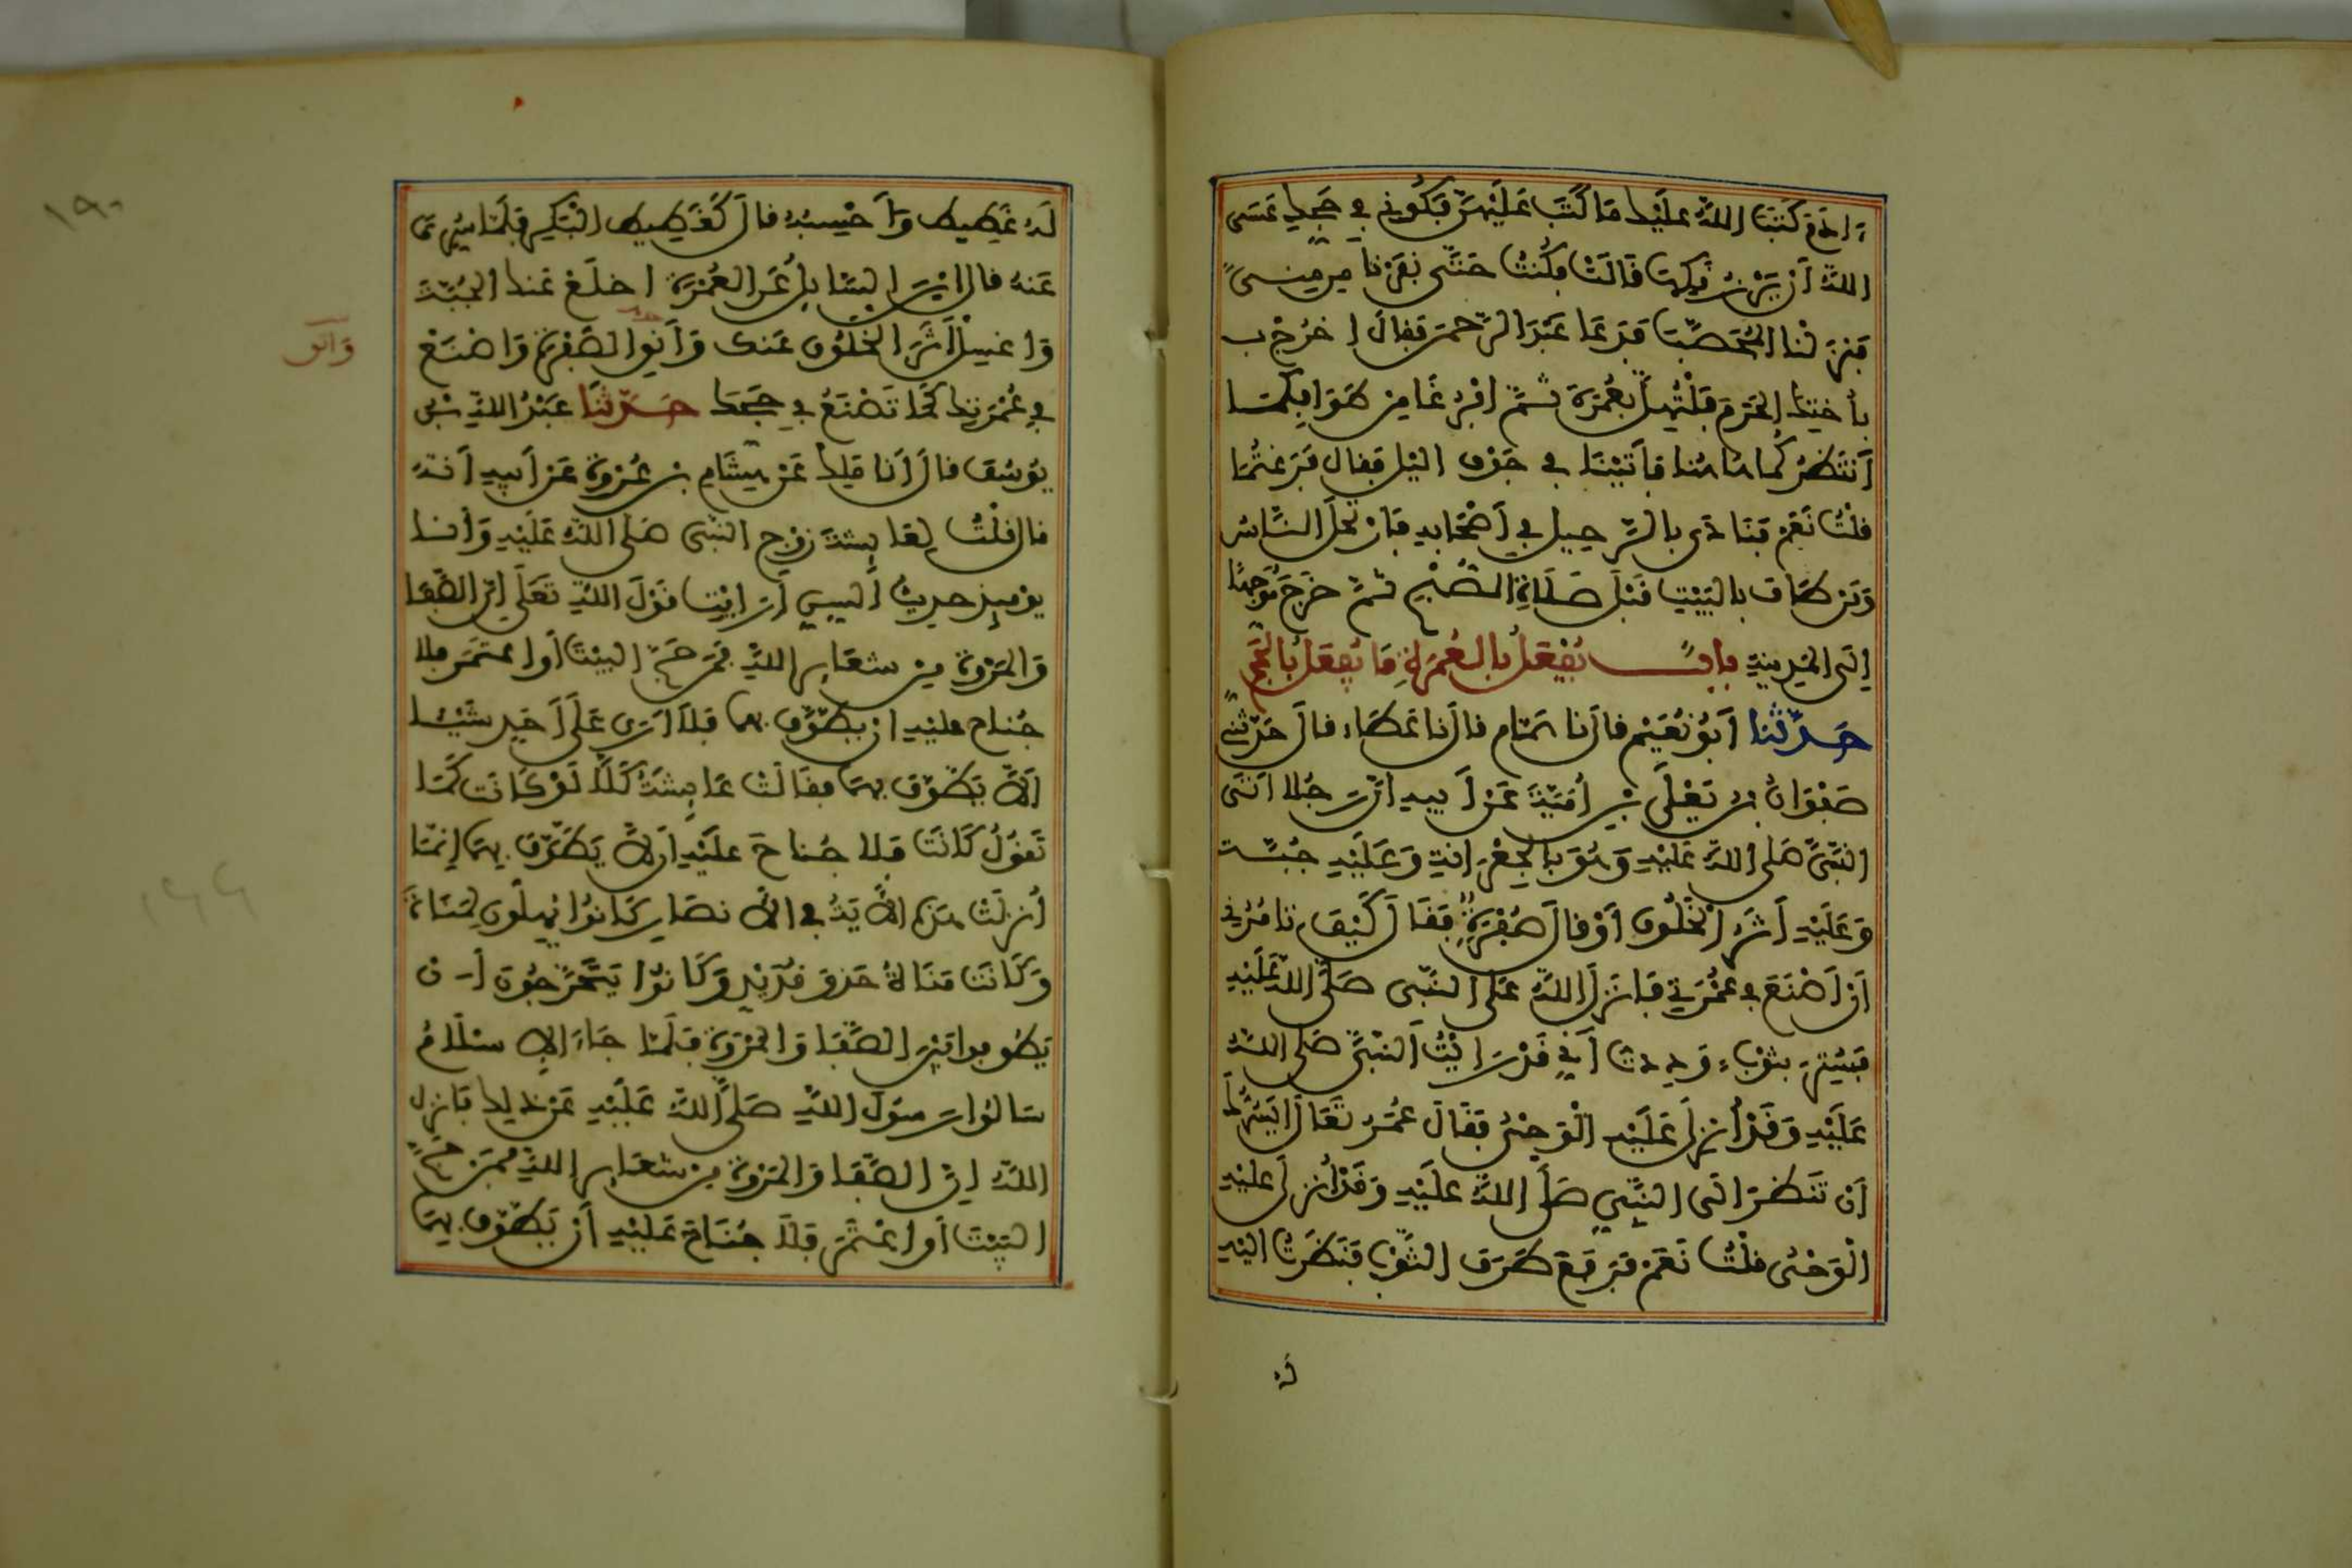 ءادَمَ كَتَبَ اللهُ عليْكِ مَا كَتَبَ عَلَيْهِنَّ فَكُونِي فِي حَجِّكِ عَسَى
اللهُ أنْ يَرْزُقَكِهَا قَالَتْ فكُنتُ حَتَّى نَفَرْنَا مِن مِنىً
فَنَزَلْنَا المُحَصَّبَ فَدَعَا عَبْدَ الرَّحمن فقالَ اخرُجْ ب
بأُختِكَ الحَرَمَ فَلْتُهِلَّ بِعُمْرَةٍ ثُمَّ افْرُغَا مِن طَوَافِكُمَا
أَنتَظِرْكُمَا هَاهُنَا فأتَيْنَا في جَوْفِ اليْلِ فقال فَرَغتُمَا
قلْتُ نَعَمْ فَنَادَى بالرَّحِيلِ في أَصْحَابِهِ فَارْتحلَ النَّاسُ
وَمَن طَافَ بالبَيْتِ قَبْلَ صَلَاةِ الصُّبْحِ ثُمَّ خَرَجَ مُوَجِّهًا
إلَى المَدِينَةِ بابٌ يُفْعَلُ بالعُمْرَةِ مَا يُفعَلُ بالحَجِّ
حَدَّثَنَا أَبُو نُعَيْمٍ قال نا هَمَّام قال نا عَطَاء قالَ حَدَّثَنِي
صَفْوَانُ بن يَعْلَى بْنِ أُمَيَّةَ عَنْ أَبِيهِ أنّ رَجُلا اتَى
النَّبِيَّ صَلى اللهُ عَلَيْهِ وَهُوَ بالجِعْرَانَةِ وَعَلَيْهِ جُبَّة
وَعَلَيْهِ أَثَرُ الْخَلُوقِ أَوْ قالَ صُفْرَةٍ فَقَالَ كَيْفَ تَامُرُنِي
أنْ أَصْنَعَ فِي عُمْرَتِي فَانزَلَ اللهُ عَلَى النَّبِي صَلَّى اللهُ عَلَيْهِ
فَسُتِرَ بثَوْبٍ وَوَدِدتُ أَنِّي قَدْ رَايْتُ النَّبِيَّ صَلى اللهُ
عَلَيْهِ وَقَدْ أُنزِلَ عَلَيْهِ الْوَحْيُ فقَالَ عُمَرُ تَعَالَ أيَسُرُّكَ
أن تَنظُرَ الَى النَّبِيِّ صَلَّى اللهُ عليْهِ وَقَدْ أُنزِلَ عليْهِ
الْوَحْيُ قلْتُ نَعَمْ فَرَفَعَ طَرَفَ الثَّوْبِ فَنَظَرْتُ اليْهِ
لَهُ غَطِيطٌ وَأَحْسِبُهُ قالَ كَغَطِيطِ الْبَكْرِ فَلَمَّا سُرِّيَ
عَنْهُ قال ايْنَ السَّائِلُ عَنِ العُمْرَةِ اخلَعْ عَنكَ الجُبَّةَ
وَاغسِلْ أَثَرَ الْخَلُوقِ عَنكَ وَأَنقِ الصُّفْرَةَ وَاصْنَعْ
وَاتق
فِي عُمْرَتِكَ كَمَا تَصْنَعُ فِي حَجِّكَ حَدَّثَنَا عَبْدُ اللهِ بْن
يُوسُفَ قالَ أَنا مَلِك عَنْ هِشَامِ بن عُرْوَةَ عَنْ أبِيهِ أَنَّهُ
قال قلْتُ لِعَايِشَةَ زَوْجِ النَّبِي صَلى اللهُ عَلَيْهِ وَأنا
يَوْمَئِذٍ حَدِيثُ السِّنِّ أَرَايْتِ قَوْلَ اللهِ تَعَلَى إنَّ الصَّفَا
وَالمَرْوَةَ مِن شعَايِرِ اللهِ فمَنْ حَجَّ البَيْتَ أوِ اعتَمَرَ فلا
جُنَاحَ عليْهِ ان يطَّوَّفَ بِهِمَا فَلَا أَرَى عَلَى أَحَدٍ شَيْئا
ألَّا يَطَّوَّفَ بِهِمَا فقَالَتْ عَايِشَةُ كَلَّا لَوْ كَانَت كَمَا
تَقُولُ كَانَتْ فَلا جُنَاحَ علَيْهِ أن لَّا يَطَّوَّفَ بِهِمَا إنمَا
أُنزِلَتْ هَذِهِ الْآيَةُ في الْأنصَارِ كَانُوا يُهِلُّونَ لِمَنَاةَ
وَكَانَتْ مَنَاةُ حَذْوَ قُدَيْدٍ وَكَانُوا يَتَحَرَّجُونَ أن
يَطُوفوا بَيْنَ الصَّفَا وَالمَرْوَةِ فَلَمَّا جَاءَ الإسْلَامُ
سَألُوا رَسُولَ اللهِ صَلَّى اللهُ عَلَيْهِ عَنْ ذلِكَ فَانزل
اللهُ إنَّ الصَّفَا وَالمَرْوَةَ مِن شعَايِرِ اللهِ فَمَنْ حَجَّ
البَيْتَ أوِ اعْتَمَرَ فَلَا جُنَاحَ عَلَيْهِ أَنْ يَطَّوَّفَ بِهِمَا
١٩٠
١٦٦